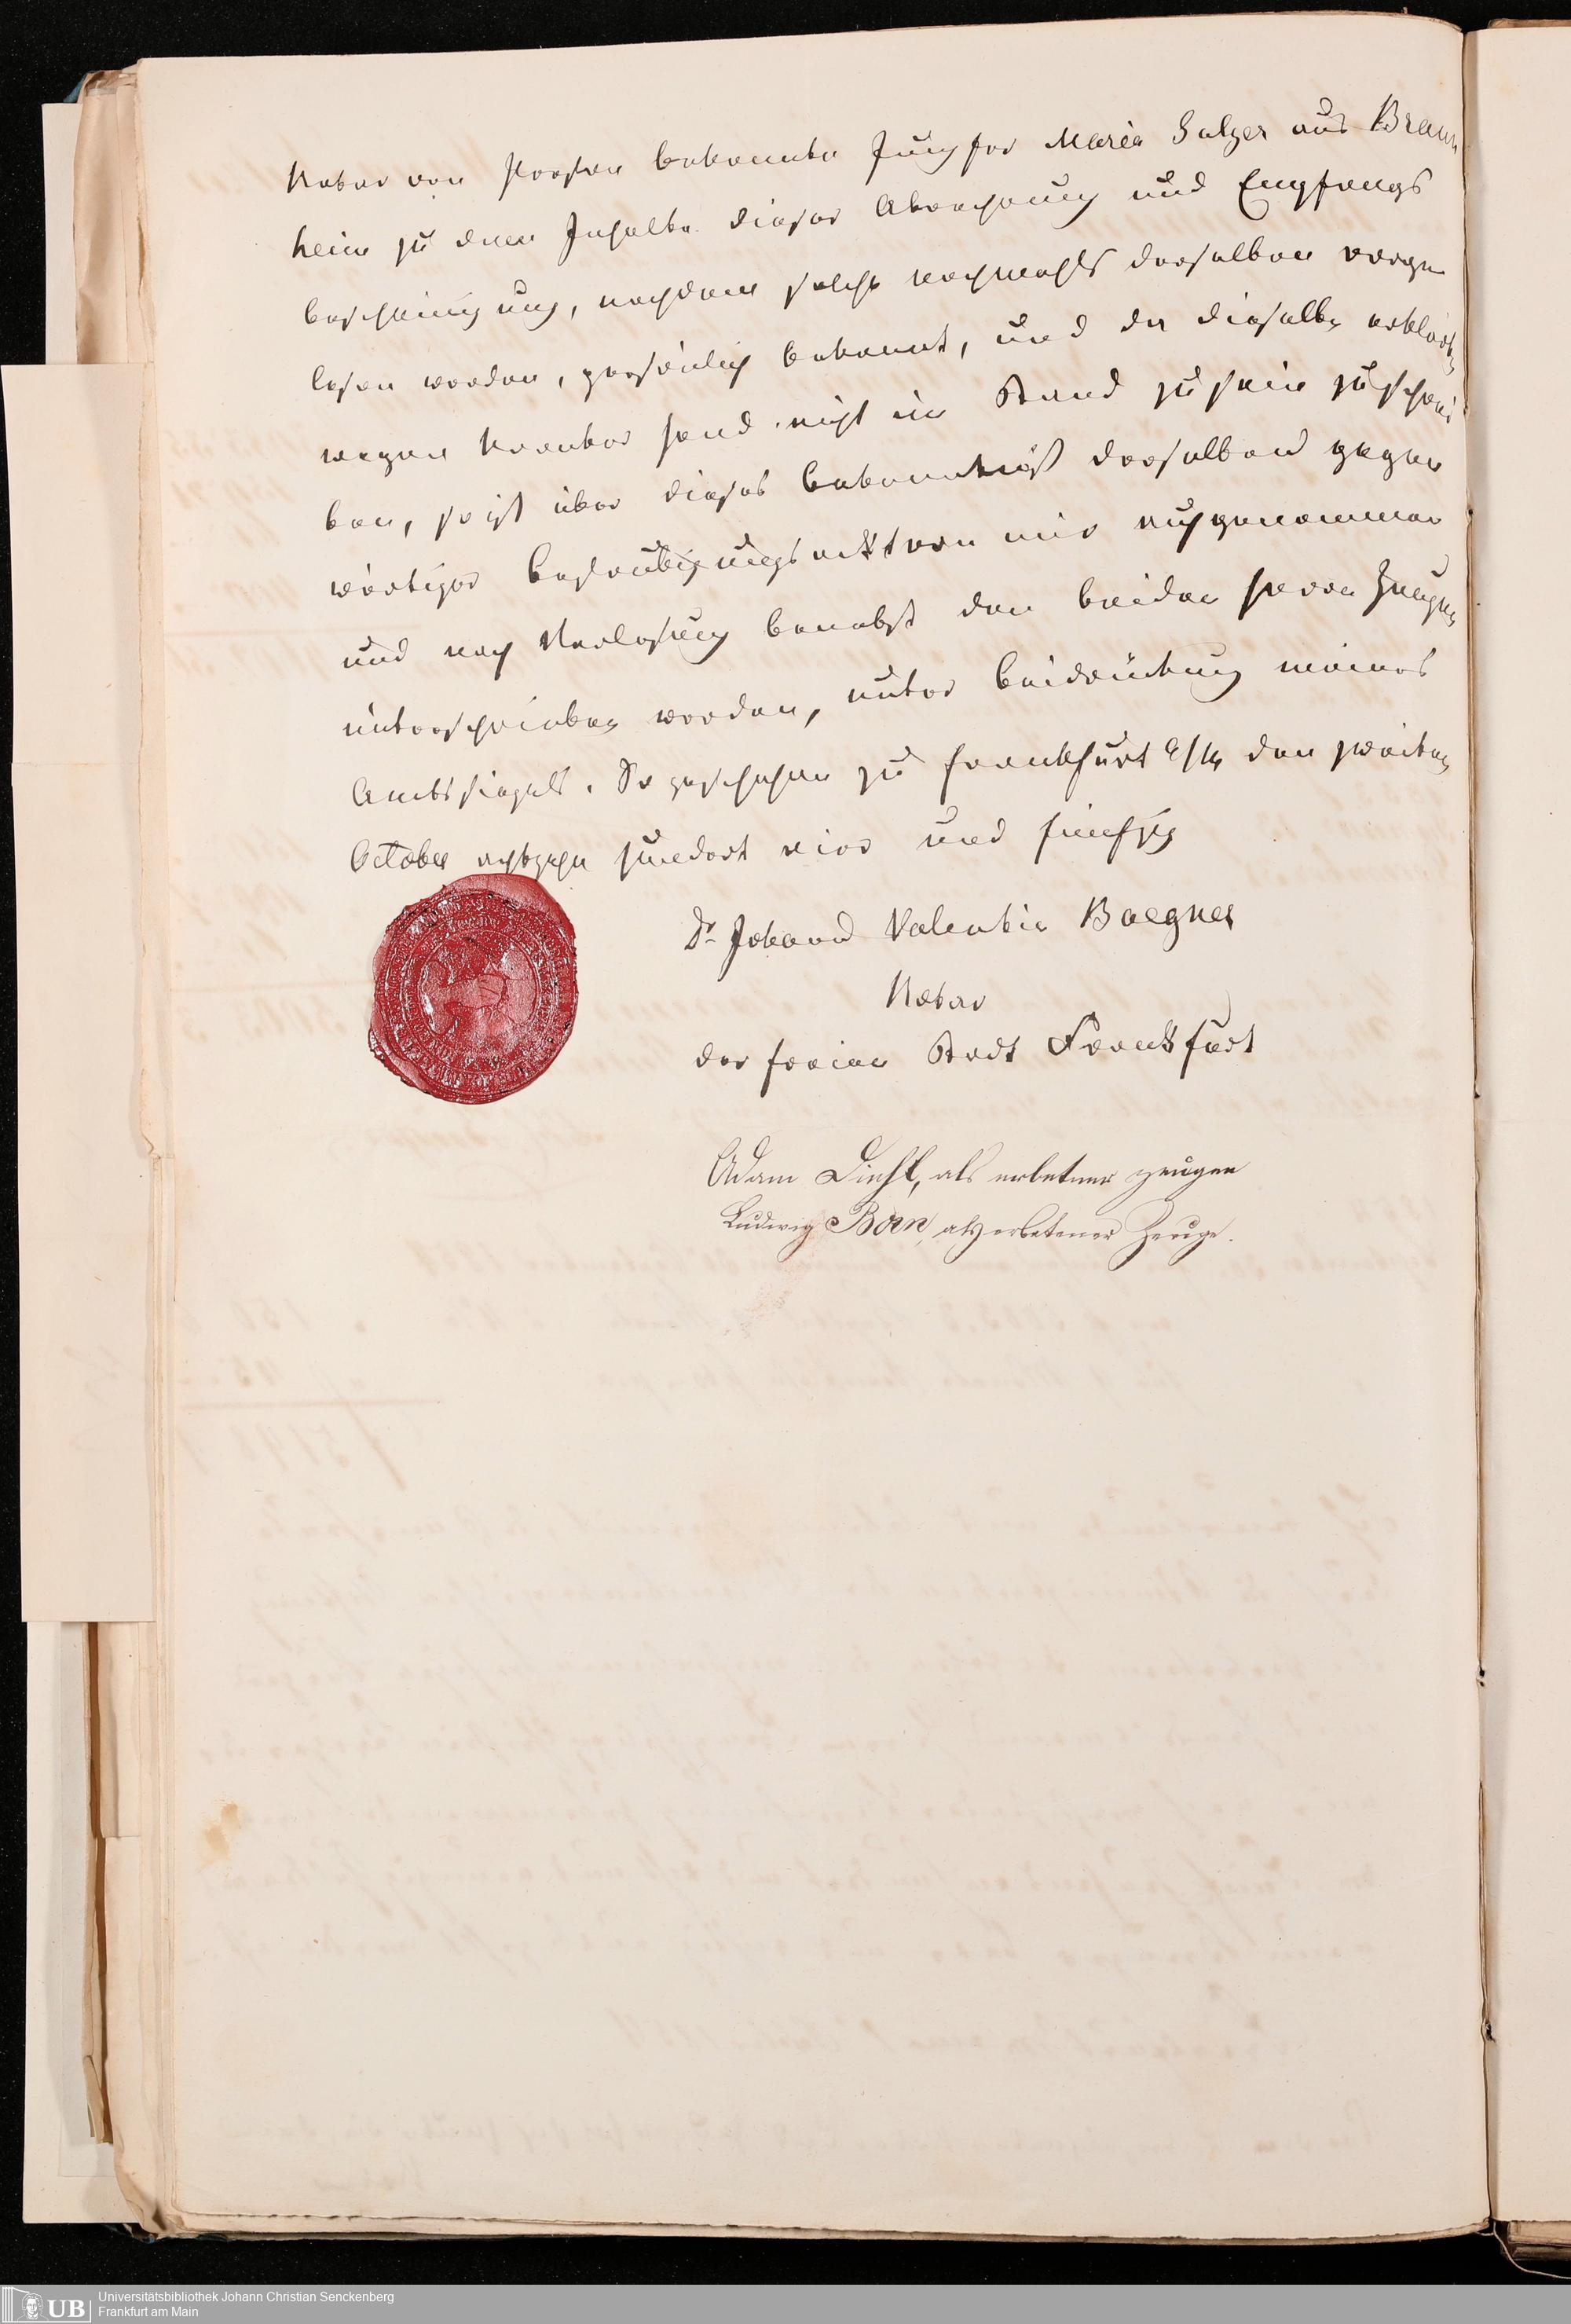 Notar von Person bekannte Jungfer Maria Salzer aus Braun
heim zu dem Inhalte dieser Abrechnung und Empfangs
bescheinigung, nachdem solche nochmahls derselben vorge
lesen worden, persönlich bekannt, und da dieselbe erklärte
wegen kranker Hand nicht im Stand zu sein zu schrei
ben, so ist über dieses Bekenntniß derselben gegen
wärtiger Beglaubigungsackt von mir aufgenommen
und nach Verlesung benebst den beiden Herrn Zeugen
unterschrieben worden, unter Beidrückung meines
Amtssiegels. So geschehen zu Frankfurt a/M den zweiten
October achtzehn hundert vier und fünfzig
Dr Johann Valentin Baegner
Notar
der freien Stadt Frankfurt
Adam Diehl, als erbetener Zeugen
Ludwig Born, als erbetener Zeuge.
UB
Universitätsbibliothek Johann Christian Senckenberg
Frankfurt am Main